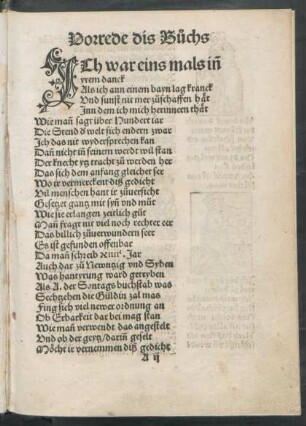 Vorrede dis Bůchs
ICh war eins mals in̄
yrem danck
Als ich ann einem bayn lag kranck
Vnd sunst nit mer zůschaffen hät
Inn dem ich mich herinnern thät
Wie man̄ sagt über Hundert iar
Die Stend ð welt sich endern zwar
Ich das nit wydersprechen kan
Dan̄ nicht in̄ seinem werdt wil stan
Der knecht yz tracht zů werden her
Das sich dem anfang gleichet ser
Wo ir vermerckent diß gedicht
Vil menschen hant ir zůuersicht
Gesetzet gantz mit syn̄ vnd můt
Wie sie erlangen zeitlich gůt
Man̄ fragt nit viel noch rechter eer
Das billich zůuerwundern seer
Es ist gefunden offenbar
Da man̄ schreib Jar
Auch dar zů Newntzig vnd Syben
Was hantyrung ward getryben
Als A. der Sontags bůchstab was
Sechzehen die Güldin zal mas
Fing sich viel newer ordnung an
Ob Erbarkeit dar bei mag stan
Wie man̄ verwendt das angestelt
Vnd ob der geyz/darin̄ gefelt
Möcht ir vernemmen diß gedicht
A ij